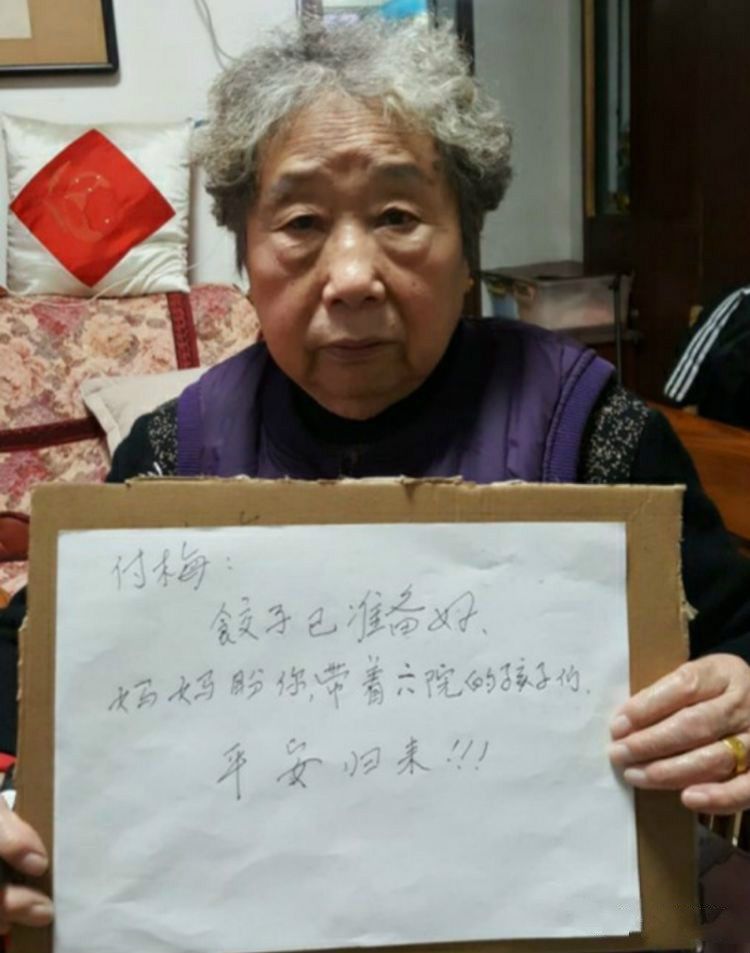 付梅：
餃子已准备好、
妈妈盼你，带着六院的孩子们、
平安归来！！！